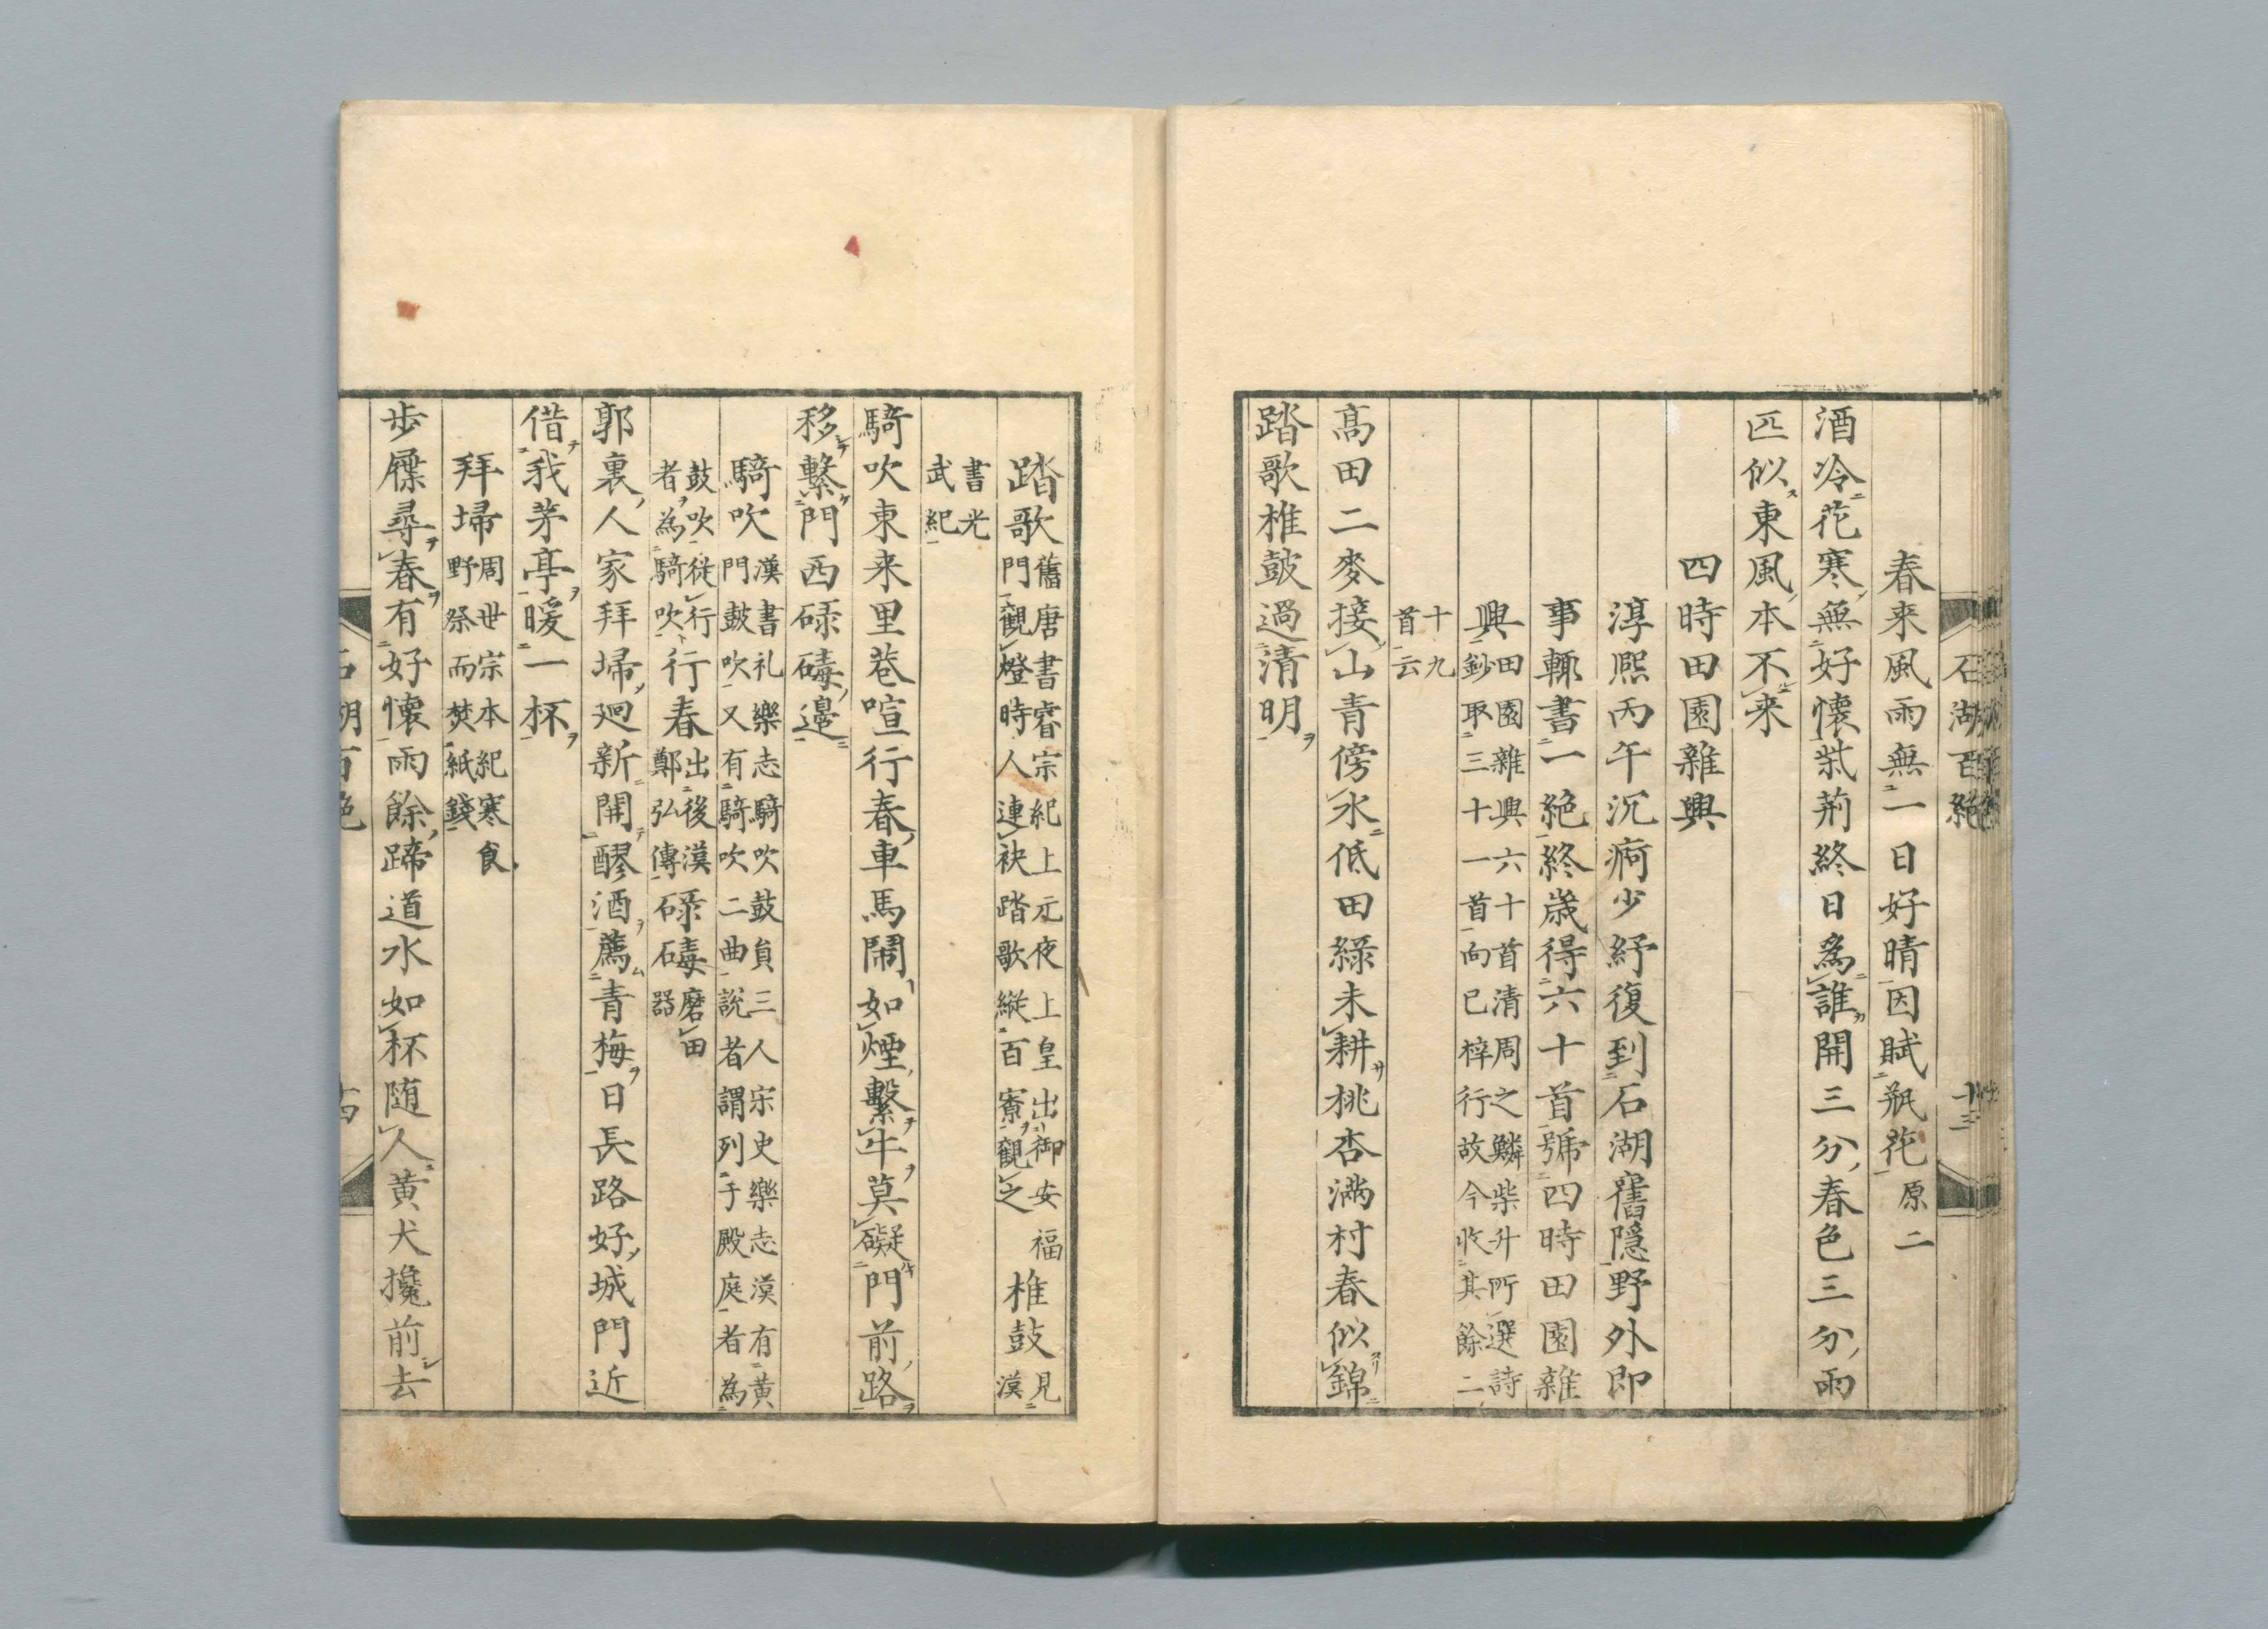 石湖百絶 十三
春来風雨無一日好晴因賦瓶花原二
酒冷花寒無好懷柴荊終日為誰開三分春色三分雨
匹似東風本不来
四時田園雜興
淳熙丙午沉痾少紓復到石湖舊隱野外即
事輒書一絶終歳得六十首號四時田園雜
興田園雜興六十首清周之鱗柴升所選詩
鈔取三十一首向已梓行故今收其餘二
十九
首云
高田二麥接山青傍水低田緑未耕桃杏満村春似錦
踏歌椎鼓過清明
踏歌舊唐書睿宗紀上元夜上皇出御安福
門觀燈時人連袂踏歌縱百寮觀之
椎鼓見
漢
書光
武紀
騎吹東来里巷喧行春車馬鬧如煙繫牛莫礙門前路
移繫門西碌碡邊
騎吹漢書礼樂志騎吹鼓員三人宋史樂志漢有黄
門鼓吹又有騎吹二曲説者謂列于殿庭者為
鼓吹従行
者為騎吹
行春出後漢
鄭弘傳
碌碡磨田
器
郭裏人家拜埽廻新開醪酒薦青梅日長路好城門近
借我茅亭暖一杯
拜埽周世宗本紀寒食
野祭而焚紙錢
歩屧尋春有好懷雨餘蹄道水如杯随人黄犬攙前去
石湖百絶